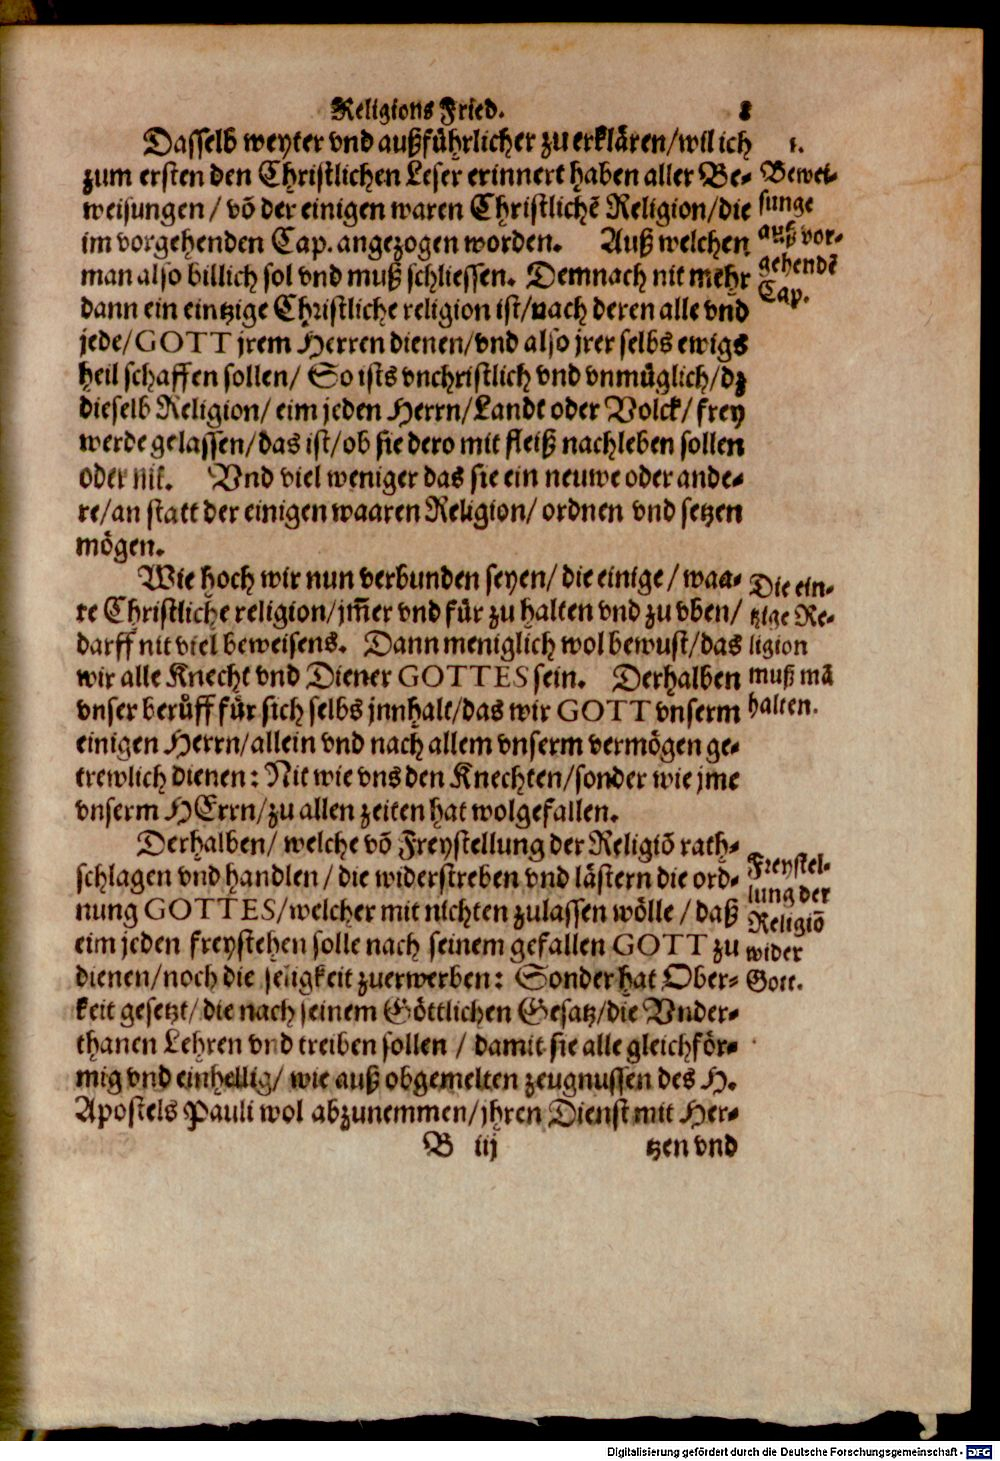 Religions Fried. 8
Dasselb weyter vnd außführlicher zu erklären/wil ich
zum ersten den Christlichen Leser erinnert haben aller Be-
weisungen / võ der einigen waren Christlichẽ Religion/die
im vorgehenden Cap. angezogen worden. Auß welchen
man also billich sol vnd muß schliessen. Demnach nit mehr
dann ein eintzige Christliche religion ist/nach deren alle vnd
jede/GOTT jrem Herren dienen/vnd also jrer selbs ewigs
heil schaffen sollen/ So ists vnchristlich vnd vnmüglich/dz
dieselb Religion/ eim jeden Herrn/Landt oder Volck/ frey
werde gelassen/das ist/ob sie dero mit fleiß nachleben sollen
oder nit. Vnd viel weniger das sie ein neuwe oder ande-
re/an statt der einigen waaren Religion/ ordnen vnd setzen
mögen.
1.
Bewei-
sunge
auß vor-
gehendẽ
Cap.
Wie hoch wir nun verbunden seyen/ die einige / waa-
re Christliche religion/jm̃er vnd für zu halten vnd zu vben/
darff nit viel beweisens. Dann meniglich wol bewust/das
wir alle Knecht vnd Diener GOTTES sein. Derhalben
vnser berůff für sich selbs jnnhalt/das wir GOTT vnserm
einigen Herrn/allein vnd nach allem vnserm vermögen ge-
trewlich dienen: Nit wie vns den Knechten/sonder wie jme
vnserm HErrn/zu allen zeiten hat wolgefallen.
Die ein-
tzige Re-
ligion
muß mã
halten.
Derhalben/ welche võ Freystellung der Religiõ rath-
schlagen vnd handlen / die widerstreben vnd lästern die ord-
nung GOTTES/welcher mit nichten zulassen wölle / daß
eim jeden freystehen solle nach seinem gefallen GOTT zu
dienen/noch die seligkeit zuerwerben: Sonder hat Ober-
keit gesetzt/die nach seinem Göttlichen Gesatz/die Vnder-
thanen Lehren vnd treiben sollen / damit sie alle gleichför-
mig vnd einhellig/ wie auß obgemelten zeugnussen des H.
Apostels Pauli wol abzunemmen/jhren Dienst mit Her-
Freystel-
lung der
Religiõ
wider
Gott.
B iij tzen vnd
Digitalisierung gefördert durch die Deutsche Forschungsgemeinschaft - DFG